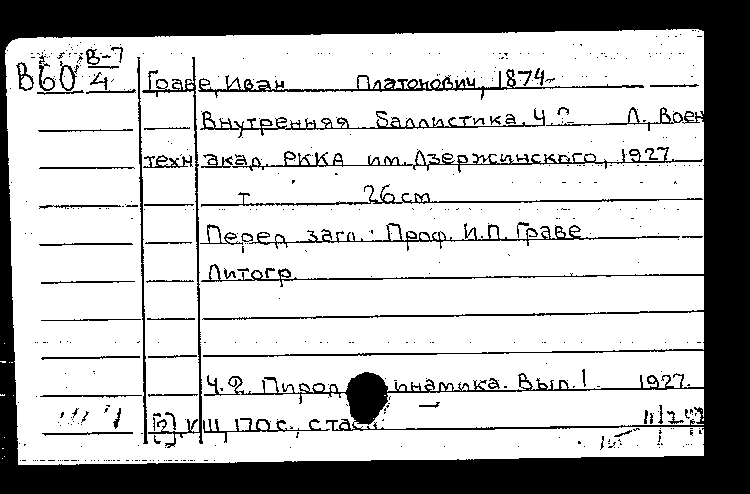 В-7
В60 4 Граве, Иван Платонович, 1874-
Внутренняя баллистика. Ч. 2 Л., Воен
техн акад. РККА им. Дзержинского, 1927
т 26 см
Перед загл.: Проф. И.П. Граве
Литогр
Ч. 2. Пирод инамика. Вып. 1 1927.
[2], VIII, 170 с., с